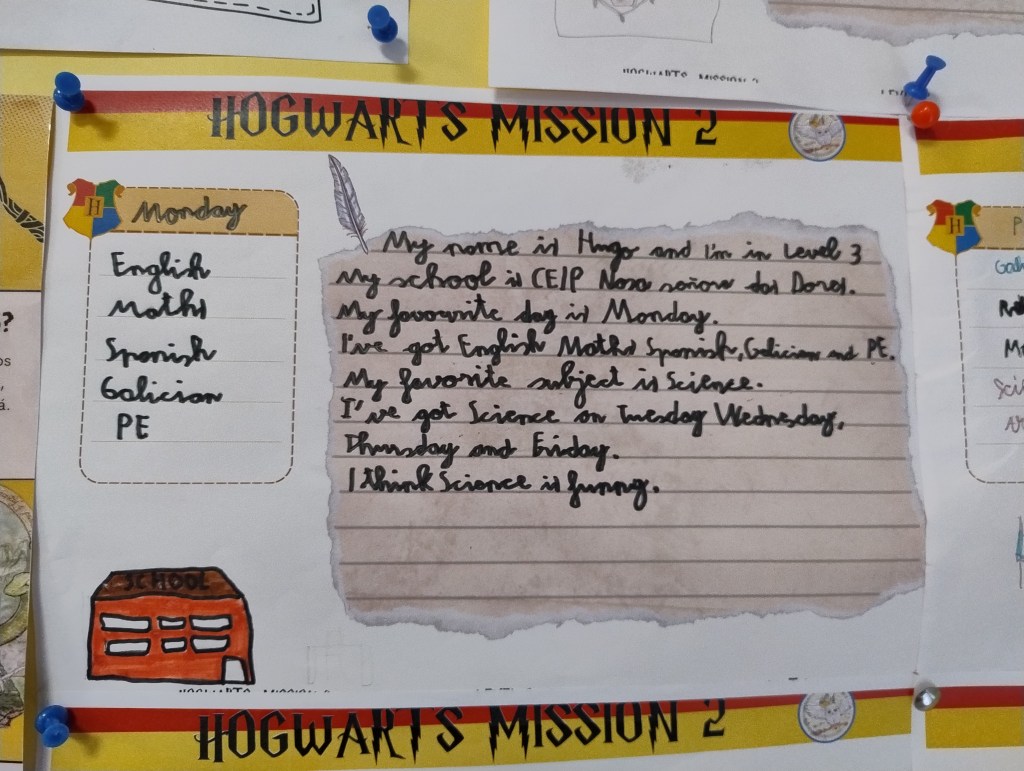 HOGWARTS MISSION 2
HOGWARTS MISSION 2
H
Monday
English
Maths
Spanish
Galician
PE
My name is Hugo and I'm in Level 3
My school is CEIP Nosa señora das Dores.
My favourite day is Monday.
I've got English Maths Spanish, Galician and PE.
My favorite subject is Science.
I've got Science on Tuesday Wednesday,
Thursday and Friday.
I think Science is funny.
SCHOOL
H
HOGWARTS MISSION 2
HOGWARTS MISSION 2